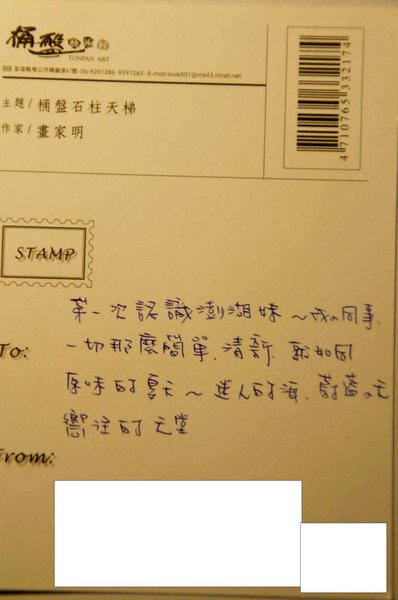 桶盤
TONPAN ART
澎湖縣馬公市桶盤里47號・06-9291286 9291262・E-mail:love501@ms43.hinet.net
4710765332174
主題/桶盤石柱天梯
作家/畫家明
STAMP
第一次認識澎湖妹~我的同事.
To:
一切那麼簡單.清新 就如同
原味的夏天~迷人的海.蔚藍の天
嚮往的天堂
From: